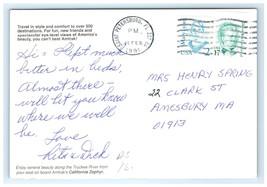 Travel in style and comfort to over 500
destinations. For fun, new friends and
spectacular eye-level views of America's
beauty, you can't beat Amtrak!
Hi - Slept much
better in beds,
Almost there -
will let you know
where we will
be.
Love
Rita & Dick
Enjoy scenic beauty along the Truckee River from
your seat on board Amtrak's California Zephyr.
SAINT PETERSBURG, FL
PM
1991
USA
MRS HENRY SPRING
22 CLARK ST
AMESBURY MA
01913